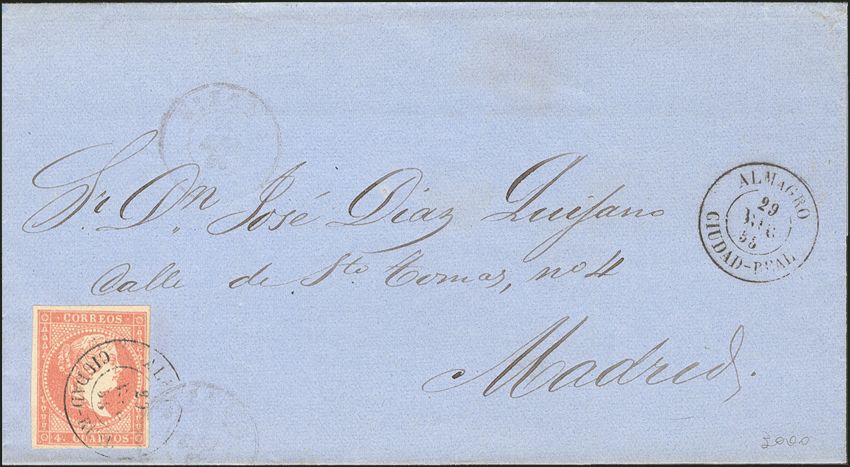 Sr. Dn. José Diaz Quijano
Calle de Sto Tomas, no 4
Madrid.
ALMAGRO
29
CIUDAD-REAL
CORREOS
4 CUARTOS
CIUDAD-R
3000